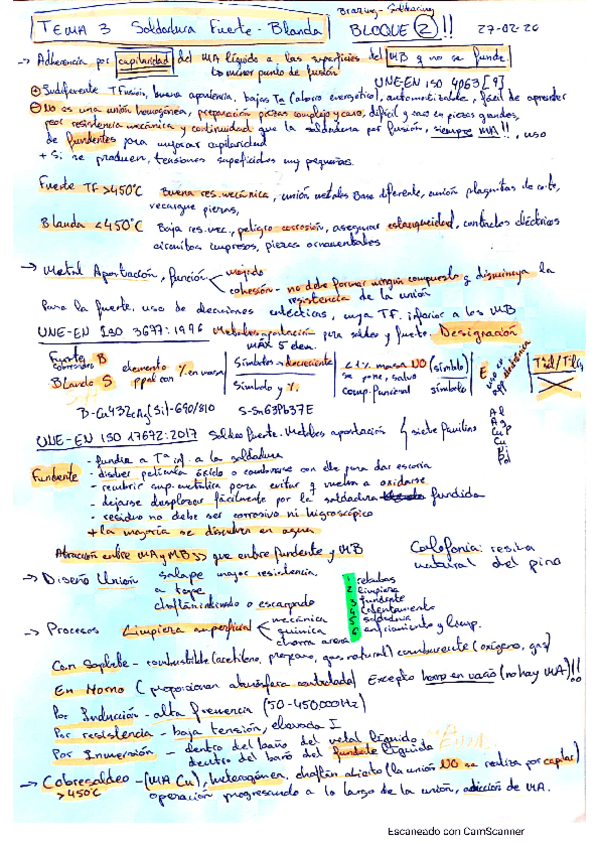 Brazing - Soldering
TEMA 3 Soldadura Fuerte - Blanda BLOQUE 2 !! 27-02-26
-> Adherencia por capilaridad del MA líquido a las superficies del MB y no se funde.
menor punto de fusión
UNE-EN ISO 4063 [9]
⊕ TFusión, buena apariencia, bajas Ta (ahorro energético), automatizable, fácil de aprender
⊖ No es una unión homogénea, preparación piezas complejo y caro, difícil y caro en piezas grandes,
peor resistencia mecánica y continuidad que la soldadura por fusión, siempre MA!!, uso
de fundentes para mejorar capilaridad
+ Si se producen, tensiones superficiales muy pequeñas.
Fuerte TF >450°C Buena res. mecánica, unión metales Base diferente, unión plaquitas de corte,
recargue piezas,
Blanda <450°C Baja res. mec., peligro corrosión, asegurar estanqueidad, contactos eléctricos
circuitos impresos, piezas ornamentales
-> Metal Aportación, función mojado
cohesión - no debe formar ningún compuesto q disminuya la
resistencia de la unión
Para la fuerte, uso de aleaciones eutécticas, cuya TF. inferior a los MB
UNE-EN ISO 3677:1996 Metales aportación para soldeo y fuerte. Designación
MÁX 5 elem.
Fuerte B
Blando S
elemento ppal con % en masa
Símbolos decreciente
Símbolo y %
<1% masa NO (símbolo)
se pone, salvo
comp. funcional símbolo
E, uso en app electrónica
Tsól/Tliq
B-Cu43ZnNi(Si)-690/810 S-Sn63Pb37E
UNE-EN ISO 17672:2017 Soldeo fuerte. Metales aportación siete familias
Al
Ag
CuP
Cu
Ni
Pd
Fundente
- fundir a Ta inf. a la soldadura
- disolver película óxido o combinarse con ella para dar escoria
- recubrir sup. metálica para evitar q vuelvan a oxidarse
- dejarse desplazar fácilmente por la soldadura fundida
- residuo no debe ser corrosivo ni higroscópico
+ la mayoría se disuelven en agua
Atracción entre MA y MB >> que entre fundente y MB
Colofonia: resina
natural del pino
-> Diseño Unión solape mayor resistencia.
a tope
chaflán inclinado o escarpado
1 rebabas
2 limpieza
3 fundente
4 calentamiento
5 soldadura
6 enfriamiento y limp.
-> Procesos Limpieza superficial mecánica
química
chorro arena
Con Soplete - combustible (acetileno, propano, gas natural) comburente (oxígeno, gas)
En Horno (proporcionan atmósfera controlada) Excepto horno en vacío (no hay MA)!!
Por Inducción - alta frecuencia (50-450.000Hz)
Por resistencia - baja tensión, elevada I
Por Inmersión - dentro del baño del metal líquido
dentro del baño del fundente líquido
-> Cobresoldeo - (MA Cu), heterogénea, chaflán abierto (la unión NO se realiza por capilar)
>450°C operación progresando a lo largo de la unión, adicción de MA.
Escaneado con CamScanner